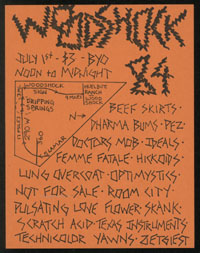 WOODSHOCK
84
JULY 1st · $3 · BYO
NOON to MIDNIGHT
WOODSHOCK
SIGN
DRIPPING
SPRINGS
HURLBUT
RANCH
WOODSHOCK
N→
290 W
360
LAMAR
BEEF SKIRTS ·
DHARMA BUMS · PEZ ·
DOCTORS MOB · IDEALS ·
FEMME FATALE · HICKOIDS ·
LUNG OVERCOAT · OPTIMYSTICS ·
NOT FOR SALE · ROOM CITY ·
PULSATING LOVE FLOWER · SKANK ·
SCRATCH ACID · TEXAS INSTRUMENTS ·
TECHNICOLOR YAWNS · ZEITGEIST